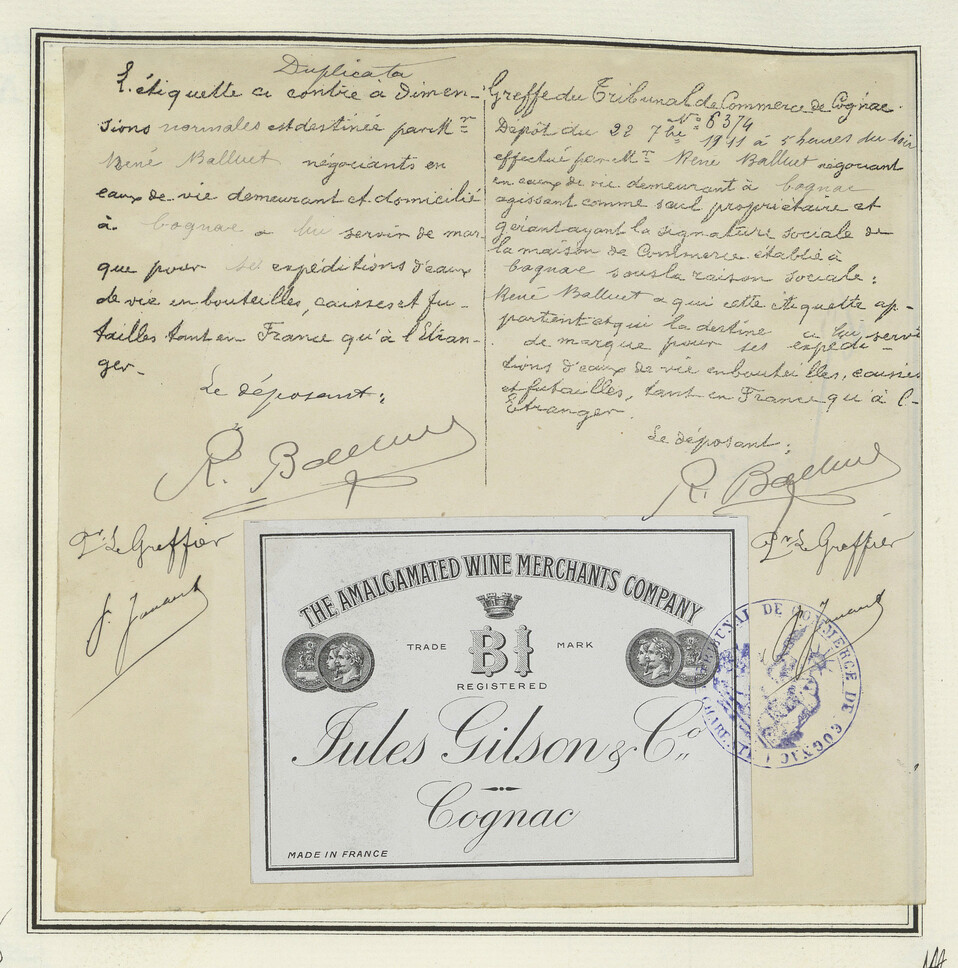 Duplicata
L'étiquette ci contre a Dimen-
sions normales est destinée par Mr
René Balluet négociants en
eaux de vie demeurant et domicilié
à Cognac a lui servir de mar
que pour ses expéditions d'eaux
de vie en bouteilles, caisses et fu-
tailles tant en France qu'à l'Etran-
ger.
Le déposant:
R. Balluet
Pr. Le Greffier
Greffe du Tribunal de Commerce de Cognac.
No 6374
Depôt du 22 7bre 1911 à 5 heures du soir
effectué par Mr René Balluet négociant
en eaux de vie demeurant à Cognac
agissant comme seul propriétaire et
gérant ayant la signature sociale de
la maison de Commerce établie à
Cognac sous la raison sociale:
René Balluet a qui cette étiquette ap-
partient et qui la destine a lui servir
de marque pour ses expédi-
tions d'eaux de vie en bouteilles, caisses
et futailles, tant en France qu'à l'-
Etranger.
Le déposant:
R. Balluet
Pr. Le Greffier
THE AMALGAMATED WINE MERCHANTS COMPANY
TRADE BI MARK
REGISTERED
Jules Gilson & Co.
Cognac
MADE IN FRANCE
TRIBUNAL DE COMMERCE DE COGNAC